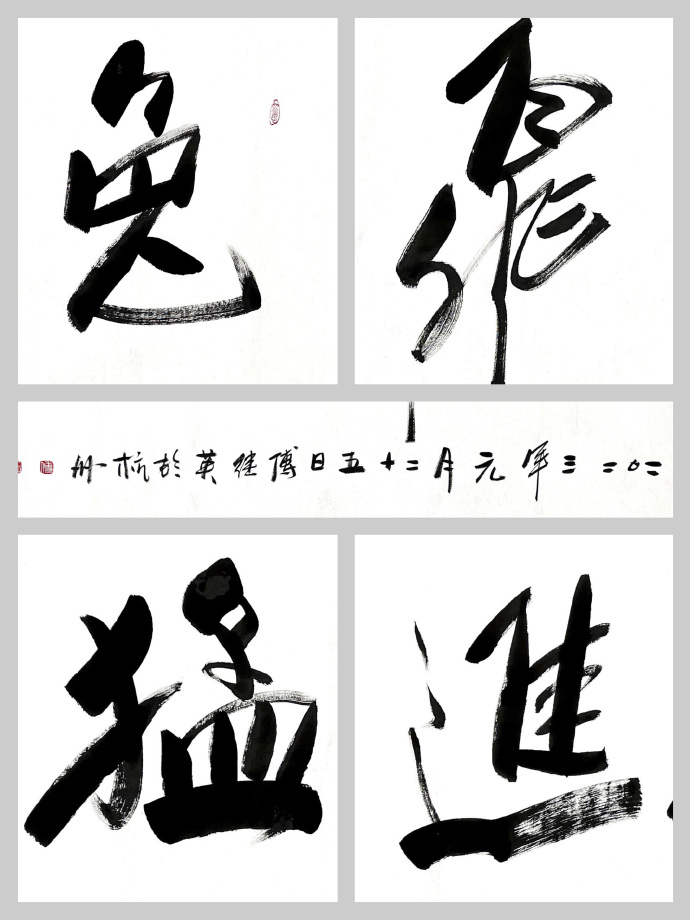 兔
飛
二〇二三年元月二十五日傅继英於杭州
猛
進